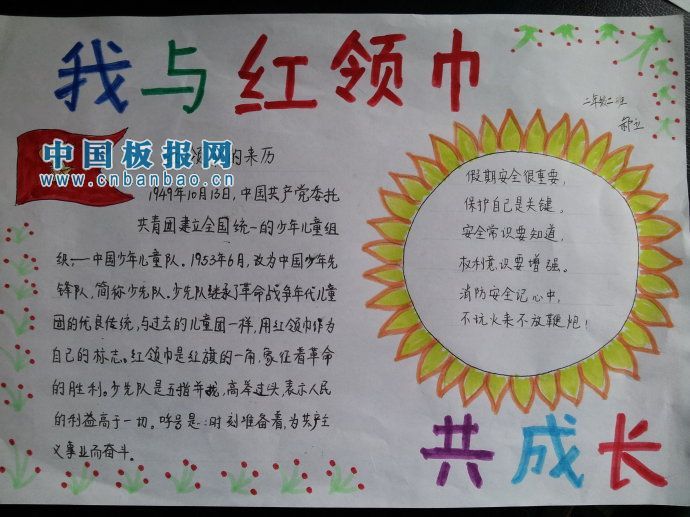 我与红领巾
二年级二班
中国板报网
www.cnbanbao.cn
的来历
1949年10月13日,中国共产党委托
共青团建立全国统一的少年儿童组
织——中国少年儿童队。1953年6月,改为中国少年先
锋队,简称少先队。少先队继承了革命战争年代儿童
团的优良传统,与过去的儿童团一样,用红领巾作为
自己的标志。红领巾是红旗的一角,象征着革命
的胜利。少先队是五指并拢,高举过头表示人民
的利益高于一切。呼号是:时刻准备着,为共产主
义事业而奋斗。
假期安全很重要,
保护自己是关键。
安全常识要知道,
权利意识要增强。
消防安全记心中,
不玩火来不放鞭炮!
共成长